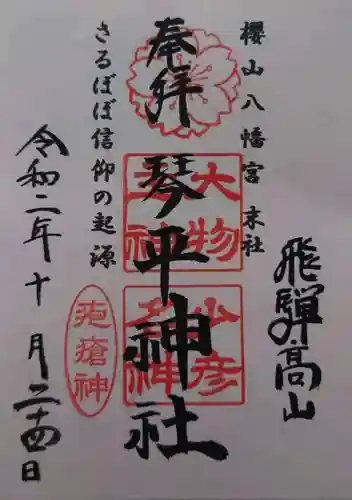 飛騨高山
櫻山八幡宮 末社
奉拝
琴平神社
大物主神
少彦名神
さるぼぼ信仰の起源
疱瘡神
令和二年十月二十四日